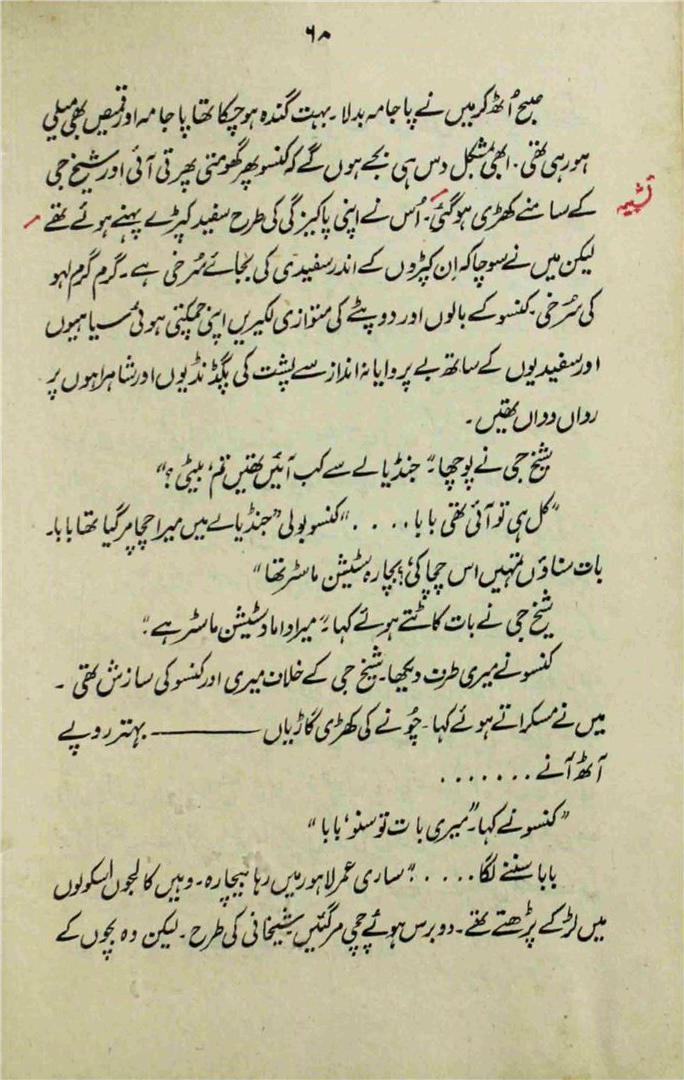 ۶۸
صبح اُٹھ کر میں نے پاجامہ بدلا۔ بہت گندہ ہو چکا تھا پاجامہ اور قمیص بھی میلی
ہو رہی تھی۔ ابھی بمشکل دس ہی بجے ہوں گے کہ کنسو پھر گھومتی پھرتی آئی اور شیخ جی
کے سامنے کھڑی ہو گئی۔ اُس نے اپنی پاکیزگی کی طرح سفید کپڑے پہنے ہوئے تھے
تشبیہ
لیکن میں نے سوچا کہ اِن کپڑوں کے اندر سفیدی کی بجائے سُرخی ہے۔ گرم گرم لہو
کی سُرخی۔ کنسو کے بالوں اور دوپٹے کی متوازی لکیریں اپنی چمکتی ہوئی سیاہیوں
اور سفیدیوں کے ساتھ بے پروایانہ انداز سے پشت کی پگڈنڈیوں اور شاہراہوں پر
رواں دواں تھیں۔
شیخ جی نے پوچھا۔ "جنڈیالے سے کب آئیں تھیں تم، بیٹی؟"
"کل ہی تو آئی تھی بابا۔۔۔۔" کنسو بولی "جنڈیالے میں میرا چچا مر گیا تھا بابا۔
بات سناؤں تمہیں اس چچا کی؟ بچارہ سٹیشن ماسٹر تھا"
شیخ جی نے بات کاٹتے ہوئے کہا۔ "میرا داماد سٹیشن ماسٹر ہے۔"
کنسو نے میری طرف دیکھا۔ شیخ جی کے خلاف میری اور کنسو کی سازش تھی۔
میں نے مسکراتے ہوئے کہا۔ چُونے کی کھڑی گاڑیاں ——— بہتر روپے
آٹھ آنے۔۔۔۔۔۔۔
"کنسو نے کہا۔ "میری بات تو سنو، بابا"
بابا سننے لگا۔۔۔۔ "ساری عمر لاہور میں رہا بیچارہ۔ وہیں کالجوں اسکولوں
میں لڑکے پڑھتے تھے۔ دو برس ہوئے چچی مر گئیں شیخانی کی طرح۔ لیکن وہ بچوں کے